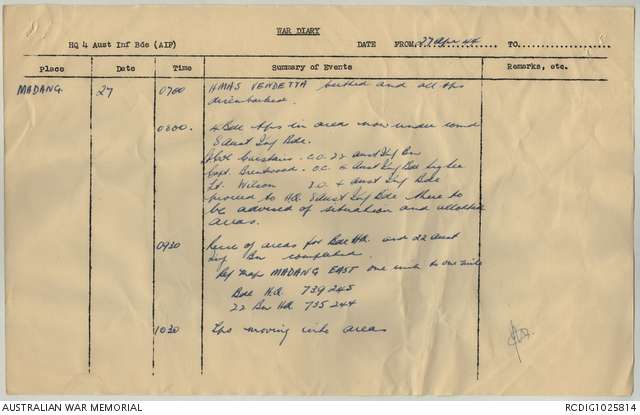 WAR DIARY
HQ 4 Aust Inf Bde (AIF) DATE FROM 27 Apr 44 TO
Place Date Time Summary of Events Remarks, etc.
MADANG 27 0700 HMAS VENDETTA berthed and all tps
disembarked.
0800. 4 Bde tps in area now under comd
5 Aust Inf Bde.
C.O. 22 Aust Inf Bn
Capt. O.C. 4 Aust Inf Bde
Lt. Wilson I.O. 4 Aust Inf Bde
proceed to HQ 5 Aust Inf Bde there to
be advised of situation and allotted
areas.
0930 Recce of areas for Bde HQ and 22 Aust
Inf Bn completed.
Ref map MADANG EAST one inch to one mile
Bde H.Q. 739245
22 Bn HQ 735244
1030 Tps moving into areas
AUSTRALIAN WAR MEMORIAL RCDIG1025814